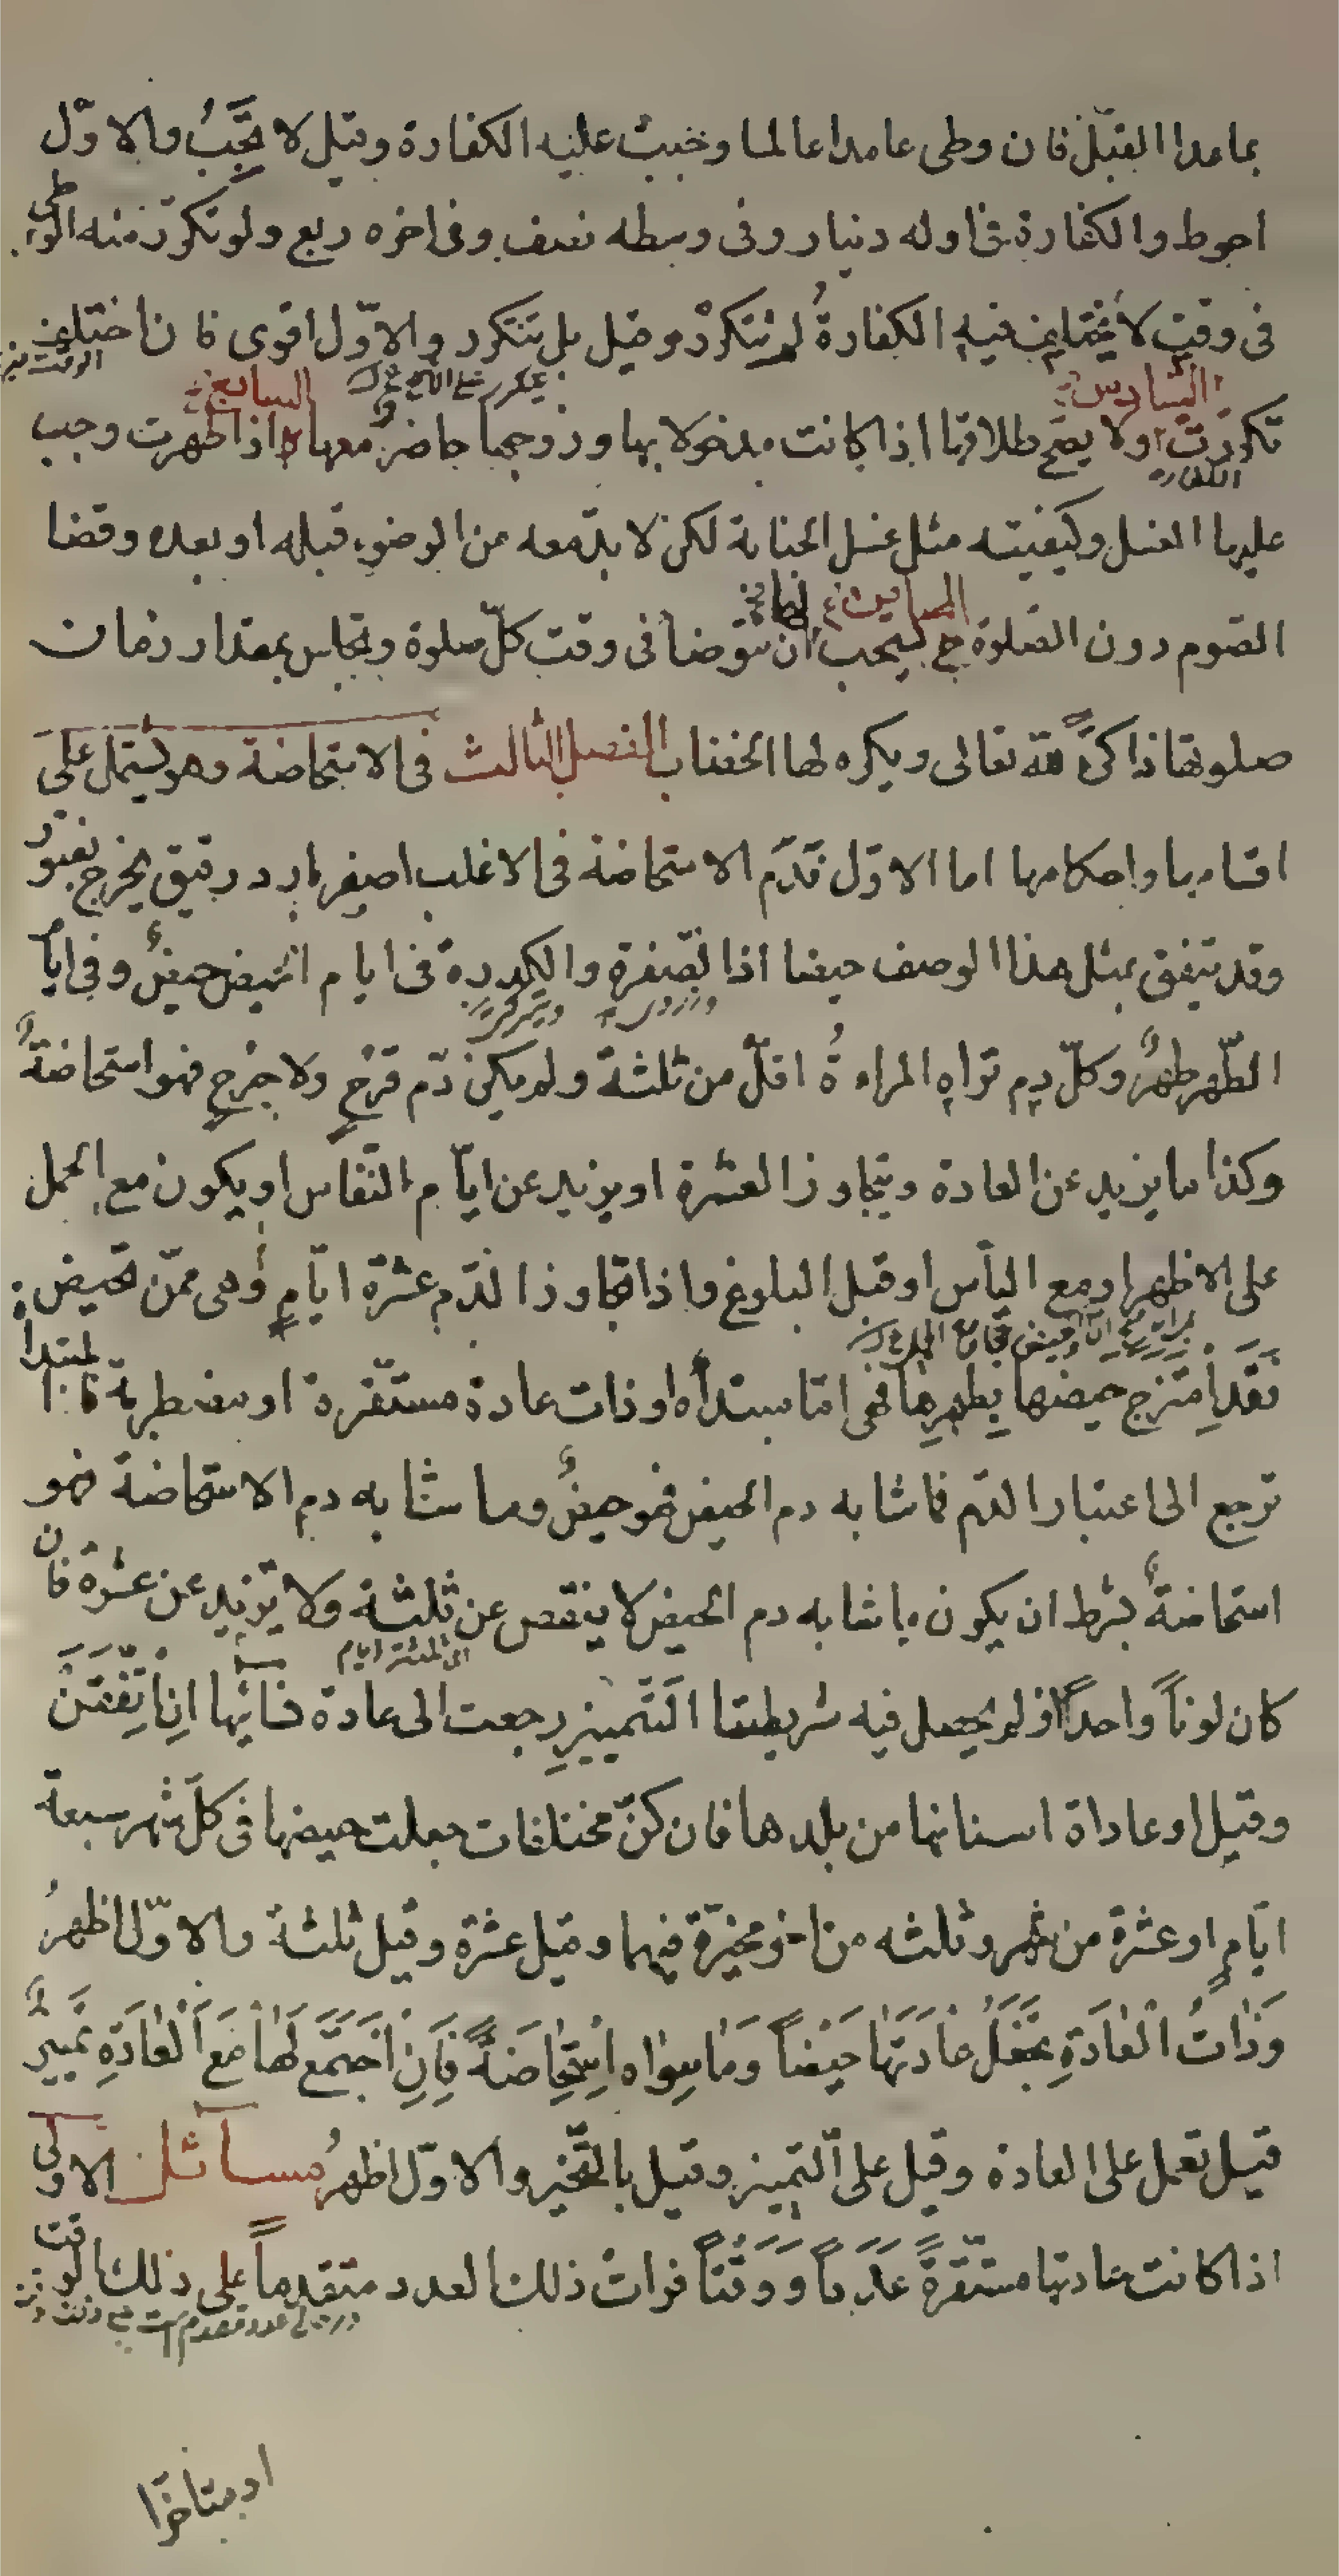 بما عدا القبل فان وطى عامدا عالما وجبت عليه الكفارة وقيل لا تجب والاول
احوط والكفارة فى اوله دينار وفى وسطه نصف وفى اخره ربع ولو تكرر منه الوطى
فى وقت لا يختلف فيه الكفارةُ لم تتكرر وقيل بل تتكرر والاوّل اقوى فان اختلف
الوقت
السادس السابع
تكررت ولا يصح طلاقها اذا كانت مدخولا بها وزوجها حاضر معها اذا طهرت وجب
الكفارة
عليها الغسل وكيفيته مثل غسل الجنابة لكن لا بدّ معه من الوضوء قبله او بعده وقضا
الثامن لها
الصّوم دون الصّلوة يستحب ان تتوضأ فى وقت كلّ صلوة وتجلس بمقدار زمان
صلوتها ذاكرةً لله تعالى ويكره لها الخضاب الفصل الثالث فى الاستحاضة وهو يشتمل على
اقسامها واحكامها اما الاوّل فدم الاستحاضة فى الاغلب اصفر بارد رقيق يخرج بفتور
وقد يتفق بمثل هذا الوصف حيضا اذا لصّفرة والكدرة فى ايام الحيض حيضٌ وفى ايا
الطّهر طهرٌ وكلّ دمٍ تراهِ المراءةُ اقلّ من ثلثة ولم يكن دم قرحٍ ولا جرحٍ فهو استحاضةٌ
وكذا ما يزيد عن العادة ويتجاوز العشرة او يزيد عن ايّام النّفاس او يكون مع الحمل
على الاظهر او مع اليأس او قبل البلوغ واذا تجاوز الدّم عشرة ايّامٍ وهى ممّن تحيض
فَقَد اِمتزج حيضها بِطهرِها فهى امّا مبتداة او ذات عادة مستقرة او مضطربة فالمبتدأ
ترجع الى اعتبار الدّم فما شابه دم الحيض فهو حيضٌ وما شابه دم الاستحاضة فهو
استحاضةٌ بشرط ان يكون ما شابه دم الحيض لا ينقص عن ثلثة ولا يزيد عن عشرة فان
كان لوناً واحداً او لم يحصل فيه شريطتا التّمييزِ رجعت الى عادة نسائها ان اتّفقن
وقيل او عاداة اسنانها من بلدها فان كنّ مختلفات جعلت حيضها فى كلّ شهر سبعة
ايّامٍ او عشرة من شهر وثلثه من اخر مخيّرة فيهما وقيل عشرة وقيل ثلثة والاوّل اظهرُ
وَذاتُ الْعادَةِ تجْعَلُ عادَتَها حَيْضاً وَما سِواه اِسْتِحاضَةً فَاِنِ اجْتَمَع لَها مَعَ الْعادَةِ تَمييزٌ
قيل تعمل على العادة وقيل على التّمييز وقيل بالتّخيير والاوّل اظهرُ مسائل الاولى
اذا كانت عادتها مستقرّةً عَدَداً وَوَقتاً فرات ذلك العدد متقدماً على ذلك الوقت
او متاخّرا